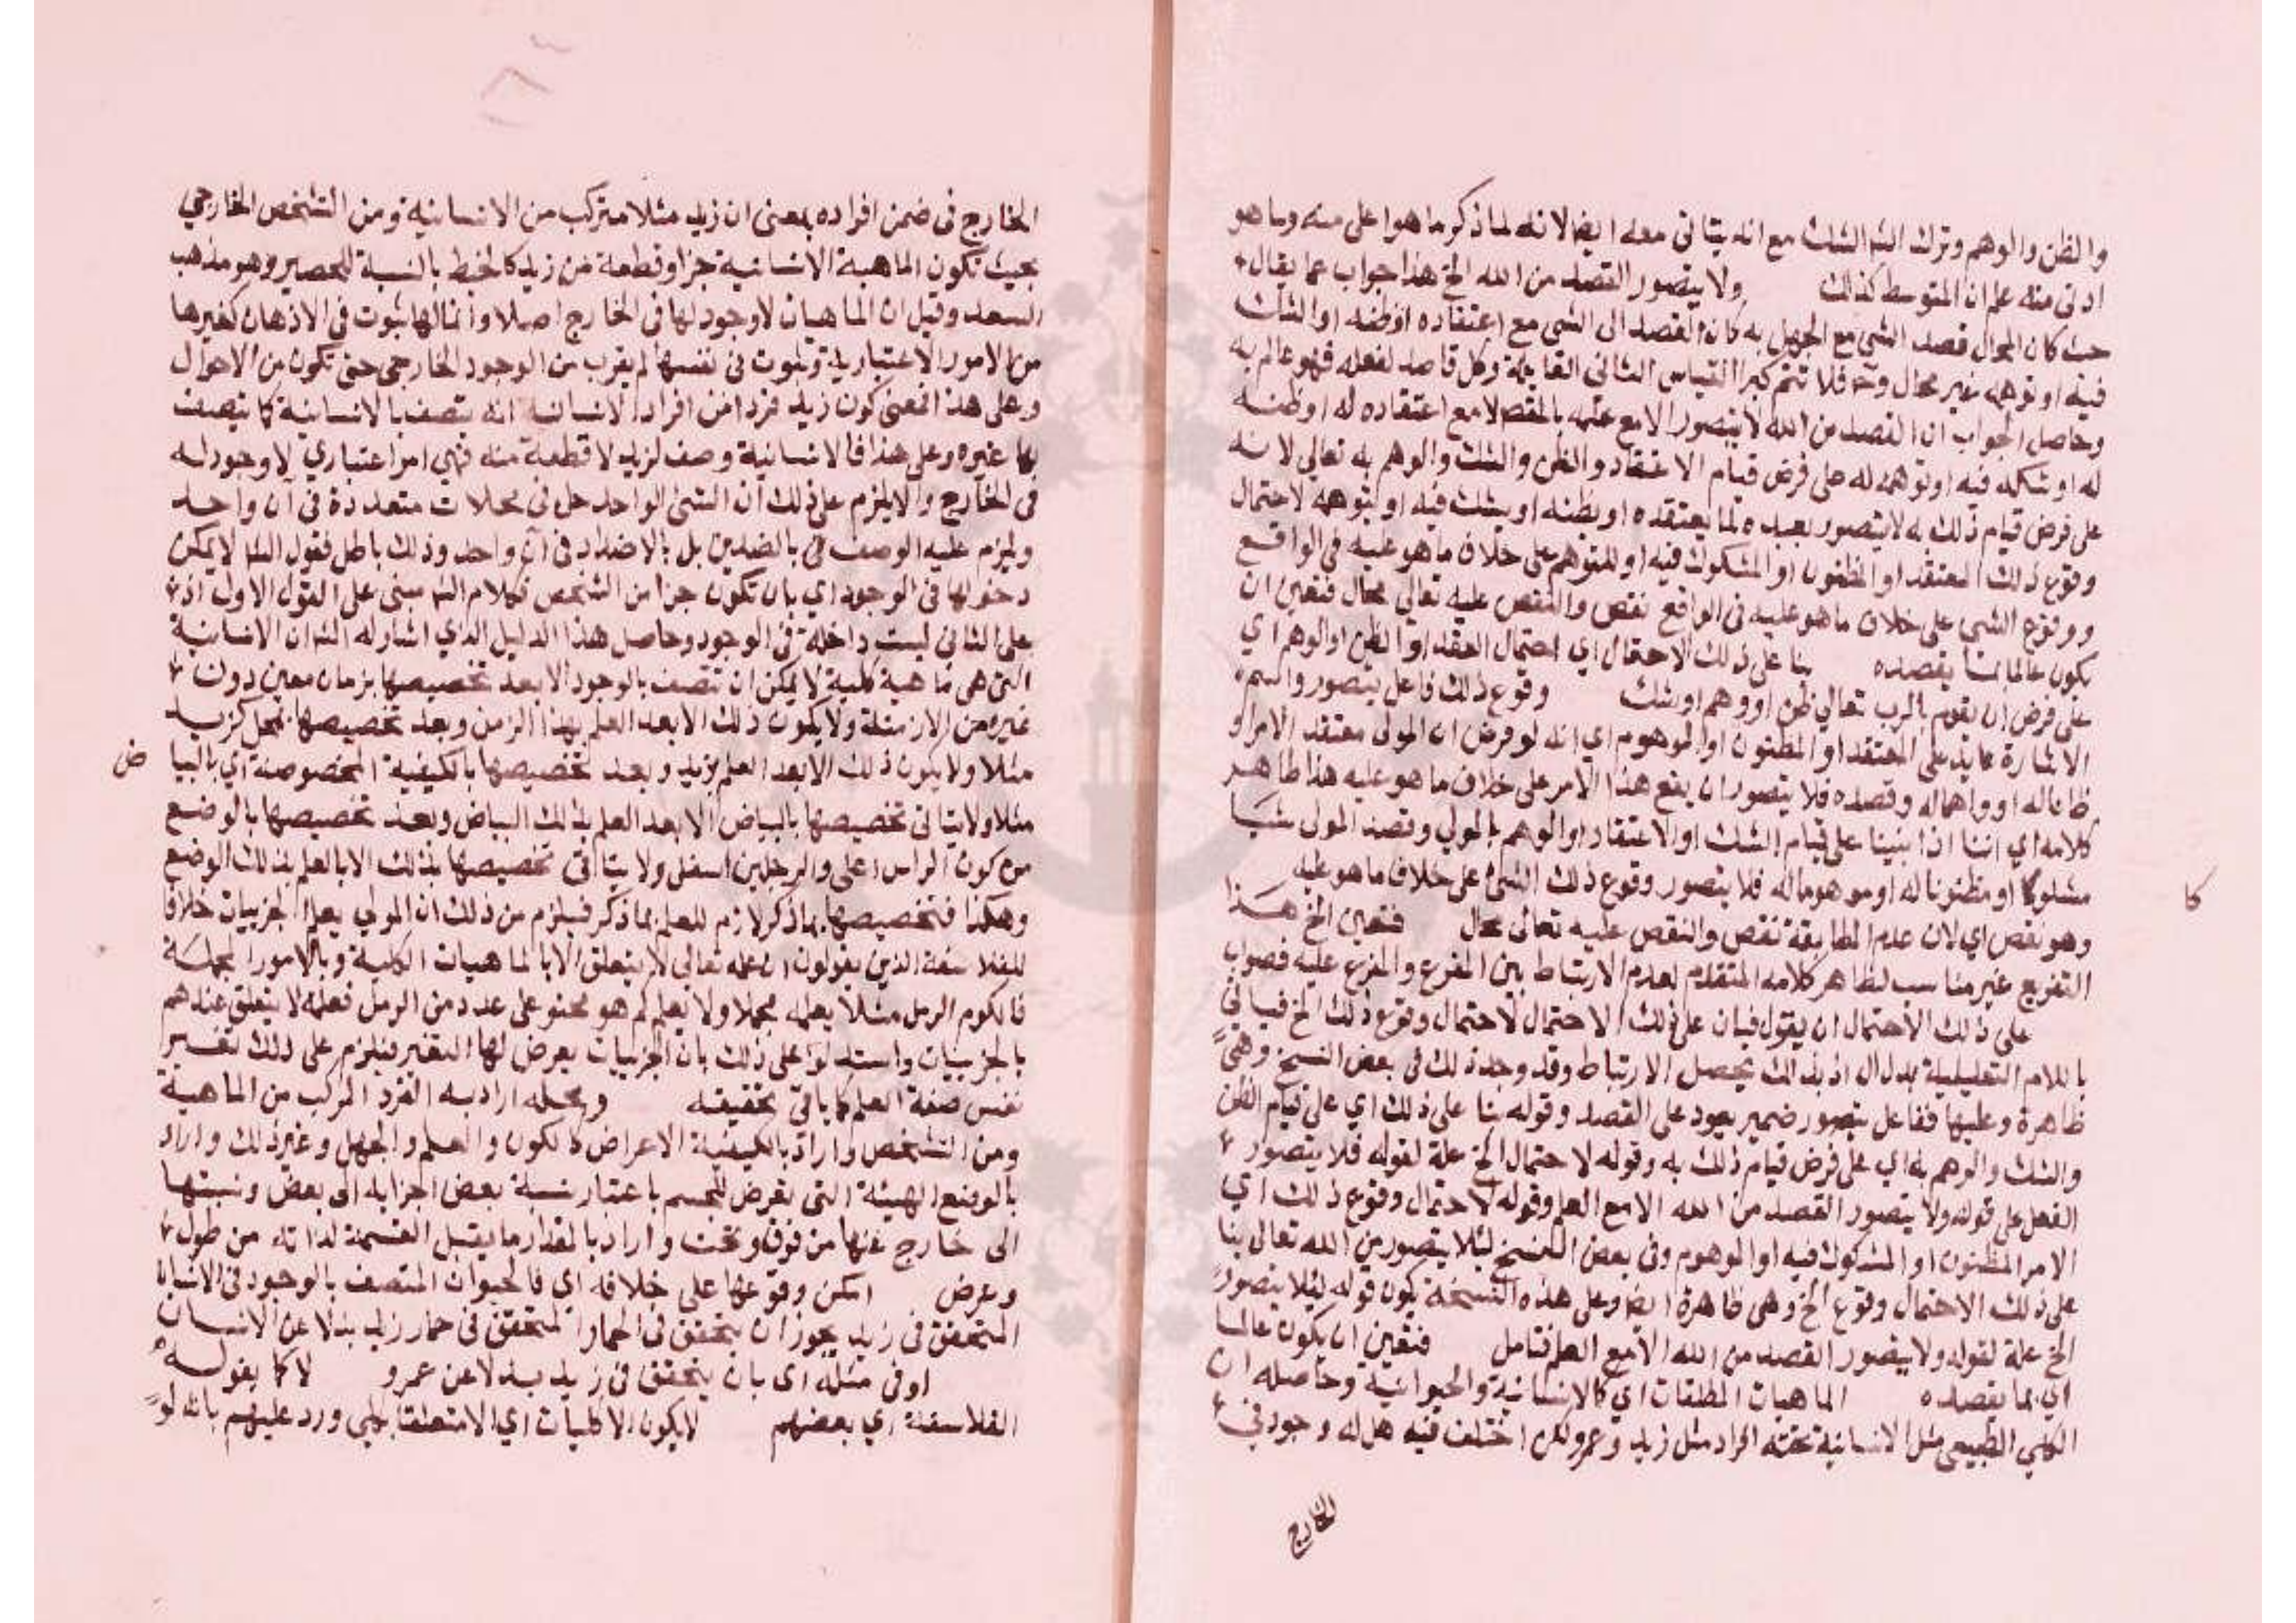 والظن والوهم وترك الشه الشك مع انه يتاتى معه ايضا لانه لما ذكر ما هوا على منه وما هو
ادنى منه علم ان المتوسط كذلك ولا يتصور القصد من الله الخ هذا جواب عما يقال
حيث كان المحال قصد الشي مع الجهل به كان القصد الى الشي مع اعتقاده او ظنه او الشك
فيه او توهمه غير محال وح فلا تتم كبرا القياس الثاني القايلة وكل قاصد لفعله فهو عالم به
وحاصل الجواب ان القصد من الله لا يتصور الا مع علمه بالمقصد لا مع اعتقاده له او ظنه
له او شكه فيه او توهمه له على فرض قيام الاعتقاد والظن والشك والوهم به تعالى لانه
على فرض قيام ذلك به لا يتصور بعبده لما يعتقده او يظنه او يشك فيه او يتوهمه لاحتمال
وقوع ذلك المعتقد او المظنون او المشكوك فيه او المتوهم على خلاف ما هو عليه في الواقع
ووقوع الشي على خلاف ما هو عليه في الواقع نقص والنقص عليه تعالى محال فتعين ان
يكون عالما بما يقصده بنا على ذلك الاحتمال اي احتمال العقد او الظن او الوهم اي
على فرض ان يقوم بالرب تعالى ظن او وهم او شك وقوع ذلك فاعل يتصور واسم
الاشارة عايد على المعتقد او المظنون او الموهوم اي انه لو فرض ان المولى معتقد الامر او
ظانا له او واهما له وقصده فلا يتصور ان يقع هذا الامر على خلاف ما هو عليه هذا ظاهر
كلامه اي اننا اذا بنينا على قيام الشك او الاعتقاد او الوهم بالمولي وقصد المولى شيا
مشكوكا او مظنونا له او موهوما له فلا يتصور وقوع ذلك الشئ على خلاف ما هو عليه
كا
وهو نقص اي لان عدم المطابقة نقص والنقص عليه تعالى محال فتعين الخ هذا
التفريع غير مناسب لظاهر كلامه المتقدم لعدم الارتباط بين المفرع والمفرع عليه فصواب
على ذلك الاحتمال ان يقول فبان على ذلك الاحتمال لاحتمال وقوع ذلك الخ فياتي
باللام التعليلية بدل ال اذ بذلك يحصل الارتباط وقد وجد ذلك في بعض النسخ وهي
ظاهرة وعليها ففاعل يتصور ضمير يعود على القصد وقوله بنا على ذلك اي على قيام الظن
والشك والوهم به اي على فرض قيام ذلك به وقوله لاحتمال الخ علة لقوله فلا يتصور
الفعل على قوله ولا يتصور القصد من الله الا مع العلم وقوله لاحتمال وقوع ذلك اي
الامر المظنون او المشكوك فيه او الموهوم وفي بعض النسخ لئلا يتصور من الله تعالى بنا
على ذلك الاحتمال وقوع الخ وهي ظاهرة ايضا وعلى هذه النسخة يكون قوله لئلا يتصور
الخ علة لقوله ولا يتصور القصد من الله الا مع العلم فتامل فتعين ان يكون عالما
اي بما يقصده الماهيات المطلقات اي كالانسانية والحيوانية وحاصله ان
الكلي الطبيعي مثل الانسانية تحته افراد مثل زيد وعمرو لكن اختلف فيه هل له وجود في
الخارج
الخارج في ضمن افراده بمعنى ان زيد مثلا مركب من الانسانية ومن التشخص الخارجي
بحيث تكون الماهية الانسانية جزا وقطعة من زيد كالخيط بالنسبة للحصير وهو مذهب
السعد وقيل ان الماهيات لا وجود لها في الخارج اصلا وانما لها ثبوت في الاذهان كغيرها
من الامور الاعتبارية وثبوت في نفسها لم يقرب من الوجود الخارجي حتى تكون من الاحوال
وعلى هذا فمعنى كون زيد فردا من افراد الانسانية انه يتصف بالانسانية كما يتصف
بها غيره وعلى هذا فالانسانية وصف لزيد لا قطعة منه فهي امر اعتباري لا وجود له
في الخارج والا يلزم على ذلك ان الشئ الواحد حل في محلات متعددة في آن واحد
ويلزم عليه الوصف بالضدين بل بالاضداد في آن واحد وذلك باطل فقول الشه لا يمكن
دخولها في الوجود اي بان تكون جزا من الشخص فكلام الشه مبني على القول الاول اذ
على الثاني ليست داخلة في الوجود وحاصل هذا الدليل الذي اشار له الشه ان الانسانية
التي هي ماهية كلية لا يمكن ان تتصف بالوجود الا بعد تخصيصها بزمان معين دون
غيره من الازمنة ولا يكون ذلك الا بعد العلم بهذا الزمن وبعد تخصيصها بمحل كزيد
مثلا ولا يكون ذلك الا بعد العلم بزيد وبعد تخصيصها بالكيفية المخصوصة اي بالبيا
ض
مثلا ولا يتاتى تخصيصها بالبياض الا بعد العلم بذلك البياض وبعد تخصيصها بالوضع
من كون الراس اعلى والرجلين اسفل ولا يتاتى تخصيصها بذلك الا بالعلم بذلك الوضع
وهكذا فتخصيصها بما ذكر لازم للعلم بما ذكر فيلزم من ذلك ان المولي يعلم الجزييات خلافا
للفلاسفة الذين يقولون ان علمه تعالى لا يتعلق الا بالماهيات الكلية وبالامور الجملة
فالكوم الرمل مثلا يعلمه مجملا ولا يعلم كم هو محتو على عدد من الرمل فعلمه لا يتعلق عندهم
بالجزييات واستدلوا على ذلك بان الجزييات يعرض لها التغير فيلزم على ذلك تغيير
نفس صفة العلم كما ياتي تحقيقه ومحله اراد به الفرد المركب من الماهية
ومن التشخص واراد بالكيفية الاعراض كالكون والعلم والجهل وغير ذلك واراد
بالوضع الهيئة التي تعرض للجسم باعتبار نسبة بعض اجزايه الى بعض ونسبتها
الى خارج عنها من فوق وتحت واراد بالمقدار ما يقبل القسمة لذاته من طول
وعرض امكن وقوعها على خلافه اي فالحيوان المتصف بالوجود في الانسان
المتحقق في زيد يجوز ان يتحقق في الحمار المتحقق في حمار زيد بدلا عن الانسان
او في مثله اي بان يتحقق في زيد بدلا عن عمرو لا كما يقوله
الفلاسفة اي بعضهم لا يكون الا كليات اي الا متعلقا بكلي ورد عليهم بانه لو